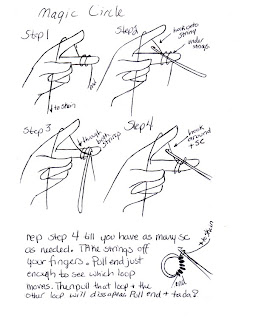 Magic Circle
Step 1
Step 2
hook onto
string
under
strings
end
to skein
Step 3
through
both
strings
Step 4
hook
around
+ sc
rep step 4 till you have as many sc
as needed. TAke strings off
your fingers. Pull end just
enough to see which loop
moves. Then pull that loop + the
other loop will dissapear. Pull end + tada!
to skein
end